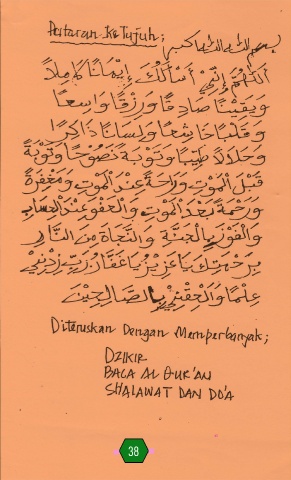 Putaran Ketujuh;
بسم الله الرحمن الرحيم
اَللّٰهُمَّ اِنِّيْ اَسْأَلُكَ اِيْمَانًا كَامِلًا
وَيَقِيْنًا صَادِقًا وَرِزْقًا وَاسِعًا
وَقَلْبًا خَاشِعًا وَلِسَانًا ذَاكِرًا
وَحَلَالًا طَيِّبًا وَتَوْبَةً نَصُوْحًا وَتَوْبَةً
قَبْلَ الْمَوْتِ وَرَاحَةً عِنْدَ الْمَوْتِ وَمَغْفِرَةً
وَرَحْمَةً بَعْدَ الْمَوْتِ وَالْعَفْوَ عِنْدَ الْحِسَابِ
وَالْفَوْزَ بِالْجَنَّةِ وَالنَّجَاةَ مِنَ النَّارِ
بِرَحْمَتِكَ يَا عَزِيْزُ يَا غَفَّارُ رَبِّ زِدْنِيْ
عِلْمًا وَاَلْحِقْنِيْ بِالصَّالِحِيْنَ
Diteruskan Dengan Memperbanyak;
DZIKIR
BACA AL QUR'AN
SHALAWAT DAN DO'A
38